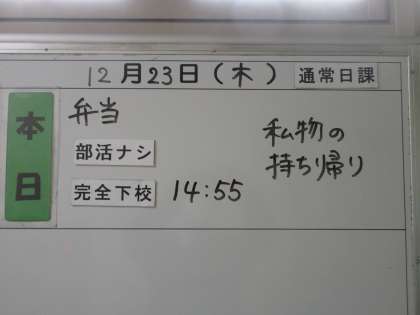 12月23日(木) 通常日課
本日
弁当
部活ナシ
完全下校 14:55
私物の
持ち帰り